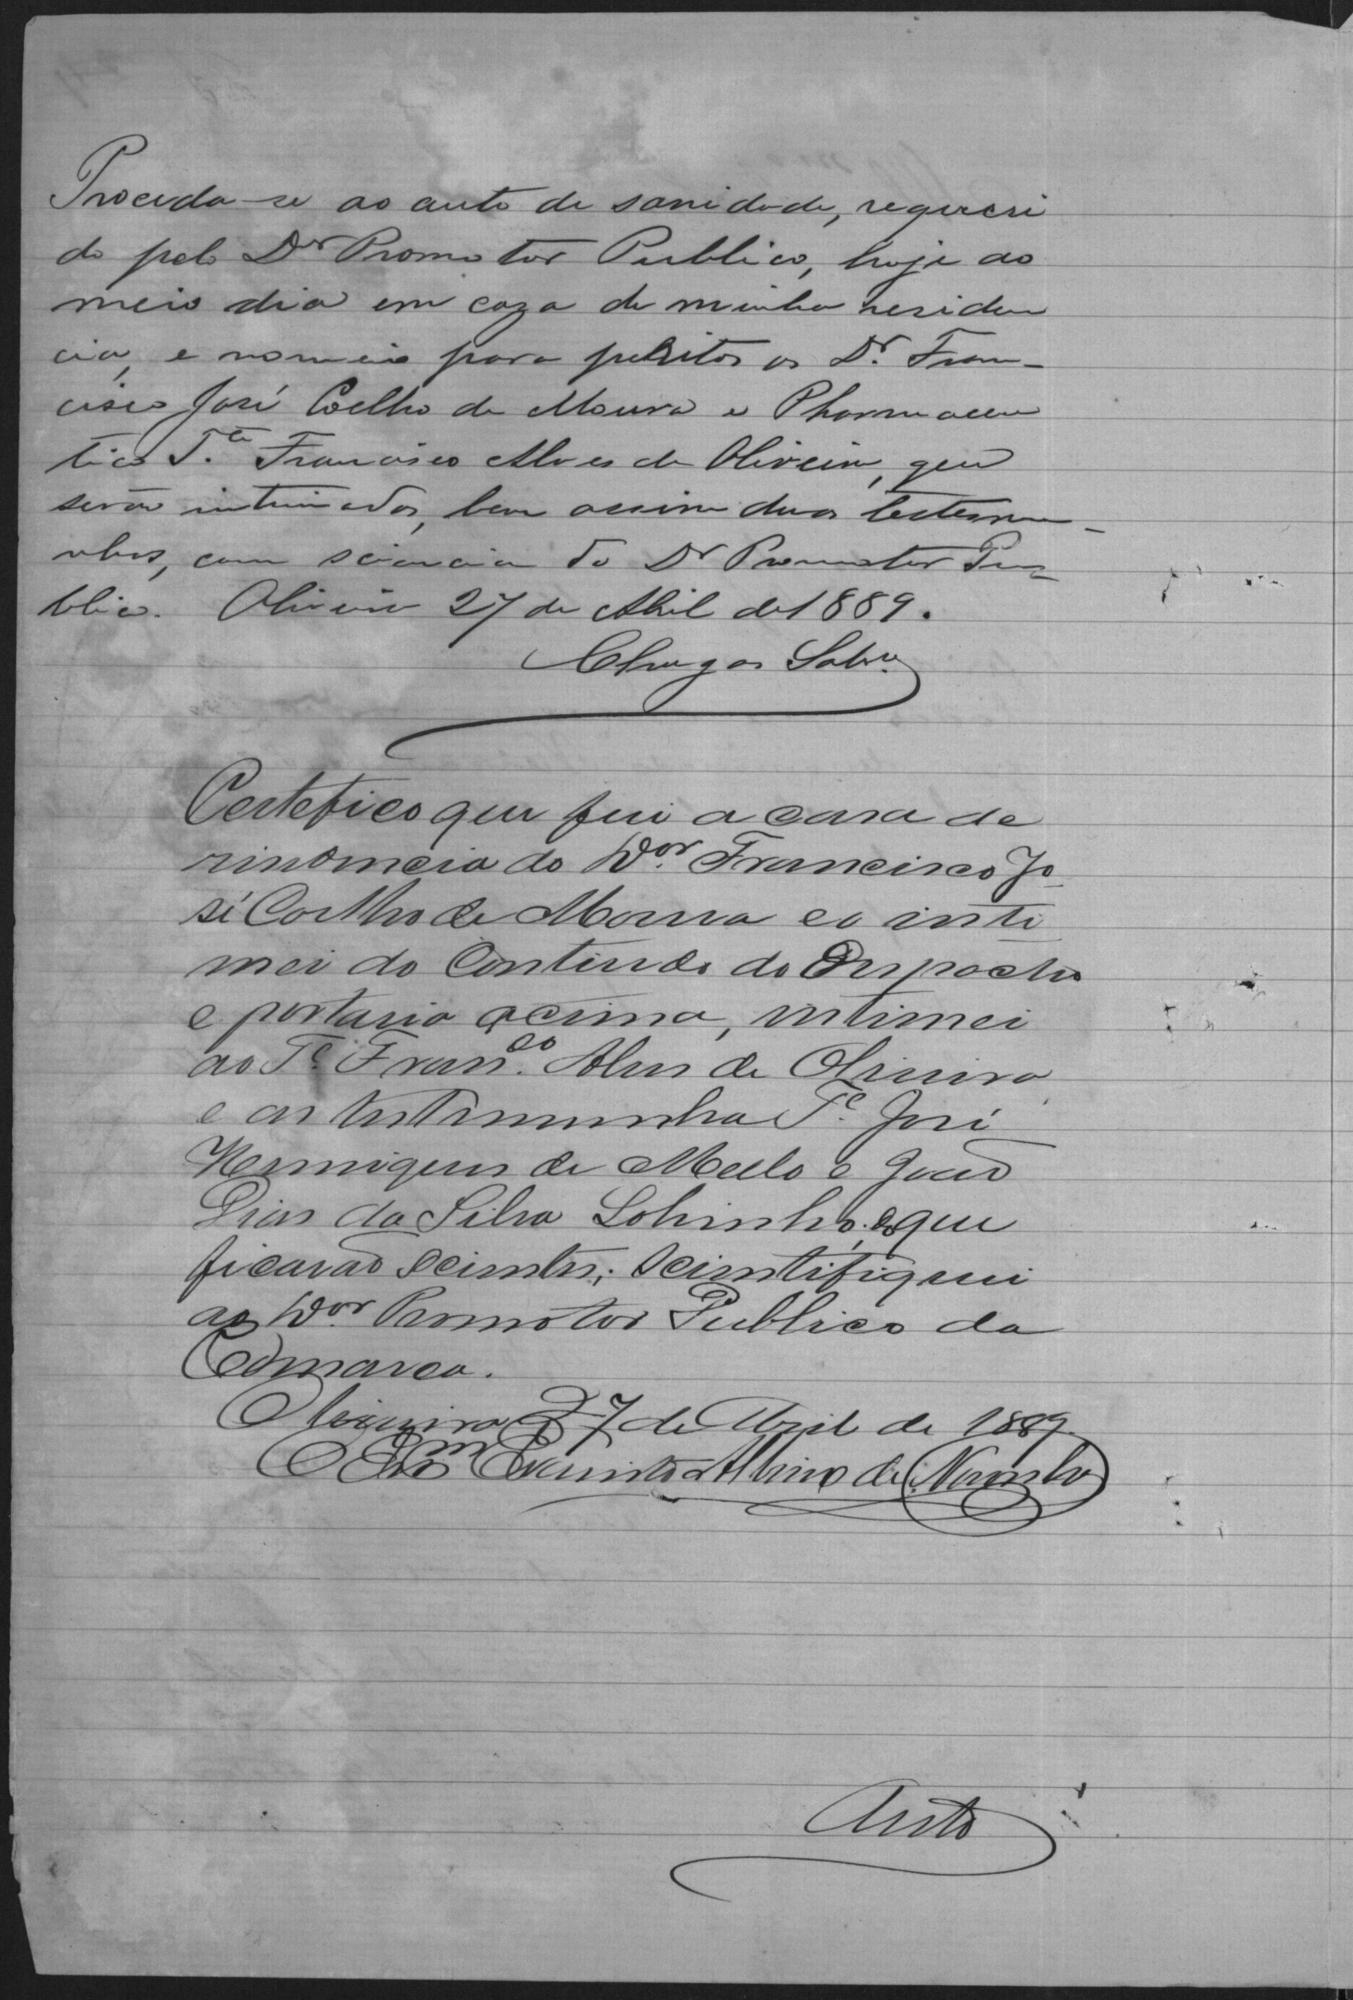 Proceda-se ao auto de sanidade, requeri
do pelo Dr Promotor Publico, hoje ao
meio dia em caza de minha residen
cia, e nomeio para peritos os Dr. Fran-
cisco José Coelho de Moura e Pharmaceu
tico Te. Francisco Alves de Oliveira, que
serão intimados, bem assim duas testemu-
nhas, com sciencia do Dr Promotor Pu-
blico. Oliveira 27 de Abril de 1889.
Chagas Sobro.
Certefico que fui a casa de
rindencia do Dor. Francisco Jo
sé Coelho de Moura e o inti
mei do Conteudo do Despacho
e portaria acima, intimei
ao Te. Franco. Alves de Oliveira
e as testimunha Te. José
Henriques de Mello e João
Dias da Silva Sobrinho, que
ficarão scientes; scientifiquei
ao Dor. Promotor Publico da
Comarca.
Oliveira 27 de Abril de 1889.
O Escm Evaristo Albino de Noronha
Auto